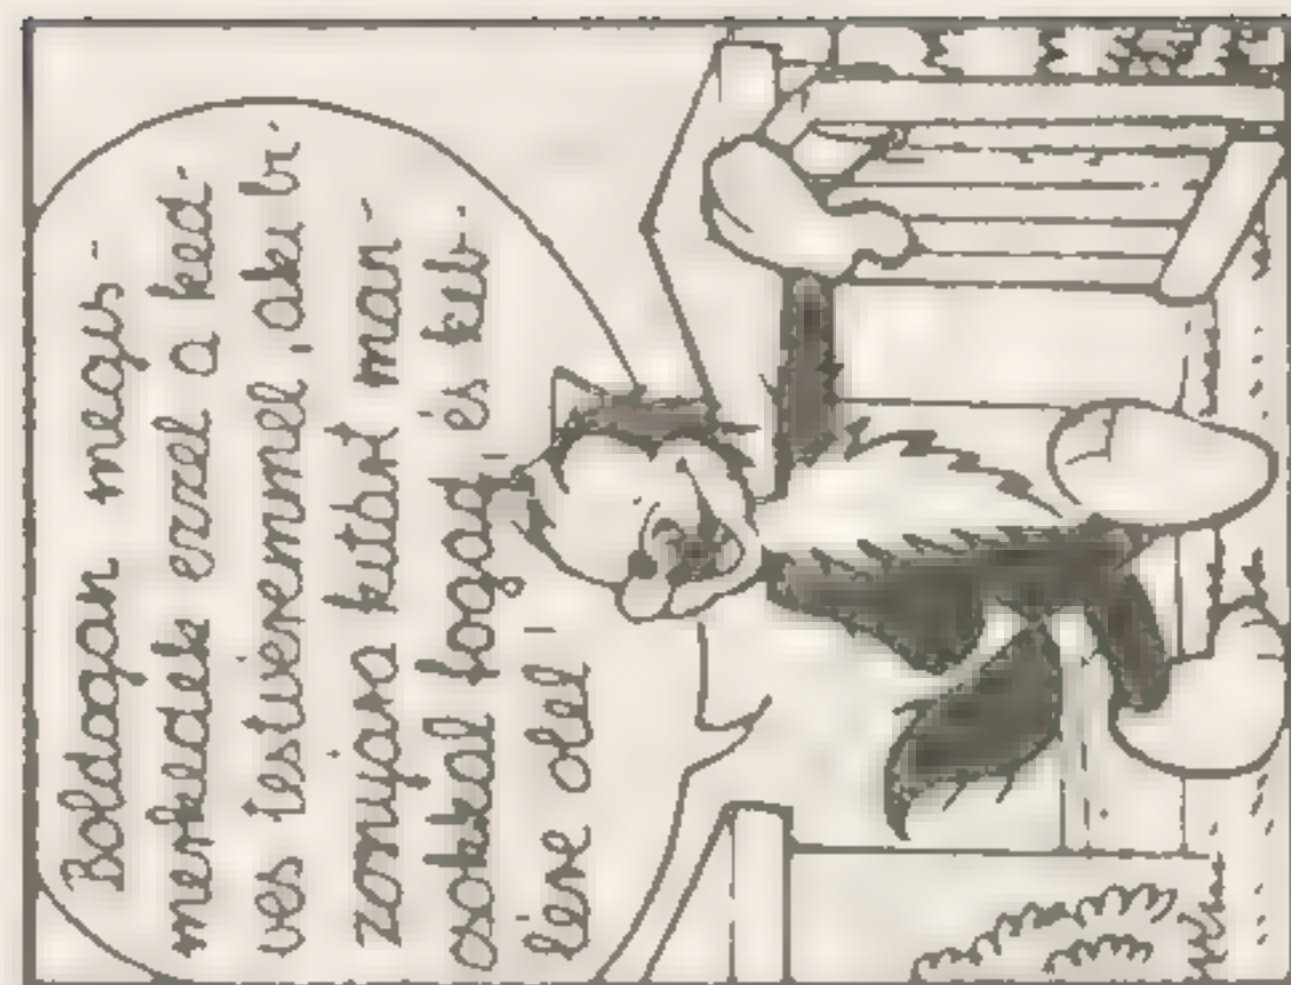 Boldogan megis-
merkedek ezzel a ked-
ves testvéremmel, aki bi-
zonyára kitárt man-
csokkal fogad és keb-
lére ölel!